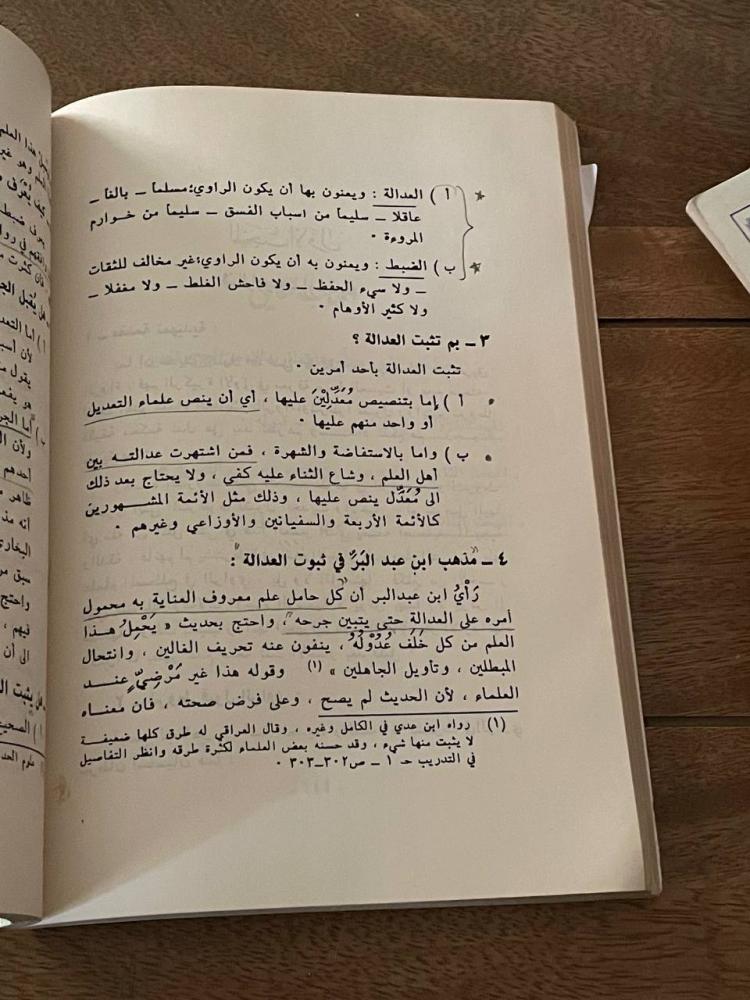 أ ) العدالة : ويعنون بها أن يكون الراوي؛ مسلماً ـ بالغاً ـ
عاقلا ـ سليماً من اسباب الفسق ـ سليماً من خوارم
المروءة ٠
ب ) الضبط : ويعنون به أن يكون الراوي؛ غير مخالف للثقات
ـ ولا سيء الحفظ ـ ولا فاحش الغلط ـ ولا مغفلا ـ
ولا كثير الأوهام ٠
٣ ـ بم تثبت العدالة ؟
تثبت العدالة بأحد أمرين ٠
أ ) إما بتنصيص مُعَدِّلِيْنَ عليها ، أي أن ينص علماء التعديل
أو واحد منهم عليها ٠
ب ) واما بالاستفاضة والشهرة ، فمن اشتهرت عدالتـه بين
أهل العلم ، وشاع الثناء عليه كفي ، ولا يحتاج بعد ذلك
الى مُعَدِّل ينص عليها ، وذلك مثل الأئمة المشهورين
كالأئمة الأربعة والسفيانين والأوزاعي وغيرهم ٠
٤ ـ مذهب ابن عبد البَرِّ في ثبوت العدالة :
رَأْيُ ابن عبدالبر أن كل حامل علم معروف العناية به محمول
أمره على العدالة حتى يتبين جرحه ، واحتج بحديث « يَحْمِلُ هـذا
العلم من كل خَلَفٍ عُدُولُهُ ، ينفون عنه تحريف الغالين ، وانتحال
المبطلين ، وتأويل الجاهلين » (١) وقوله هذا غير مَرْضِيٍّ عنـد
العلماء ، لأن الحديث لم يصح ، وعلى فرض صحته ، فان معناه
(١) رواه ابن عدي في الكامل وغيره ، وقال العراقي له طرق كلها ضعيفـة
لا يثبت منها شيء ، وقد حسنه بعض العلماء لكثرة طرقه وانظر التفاصيل
في التدريب حـ ١ ـ ص٣٠٢ـ٣٠٣ ٠